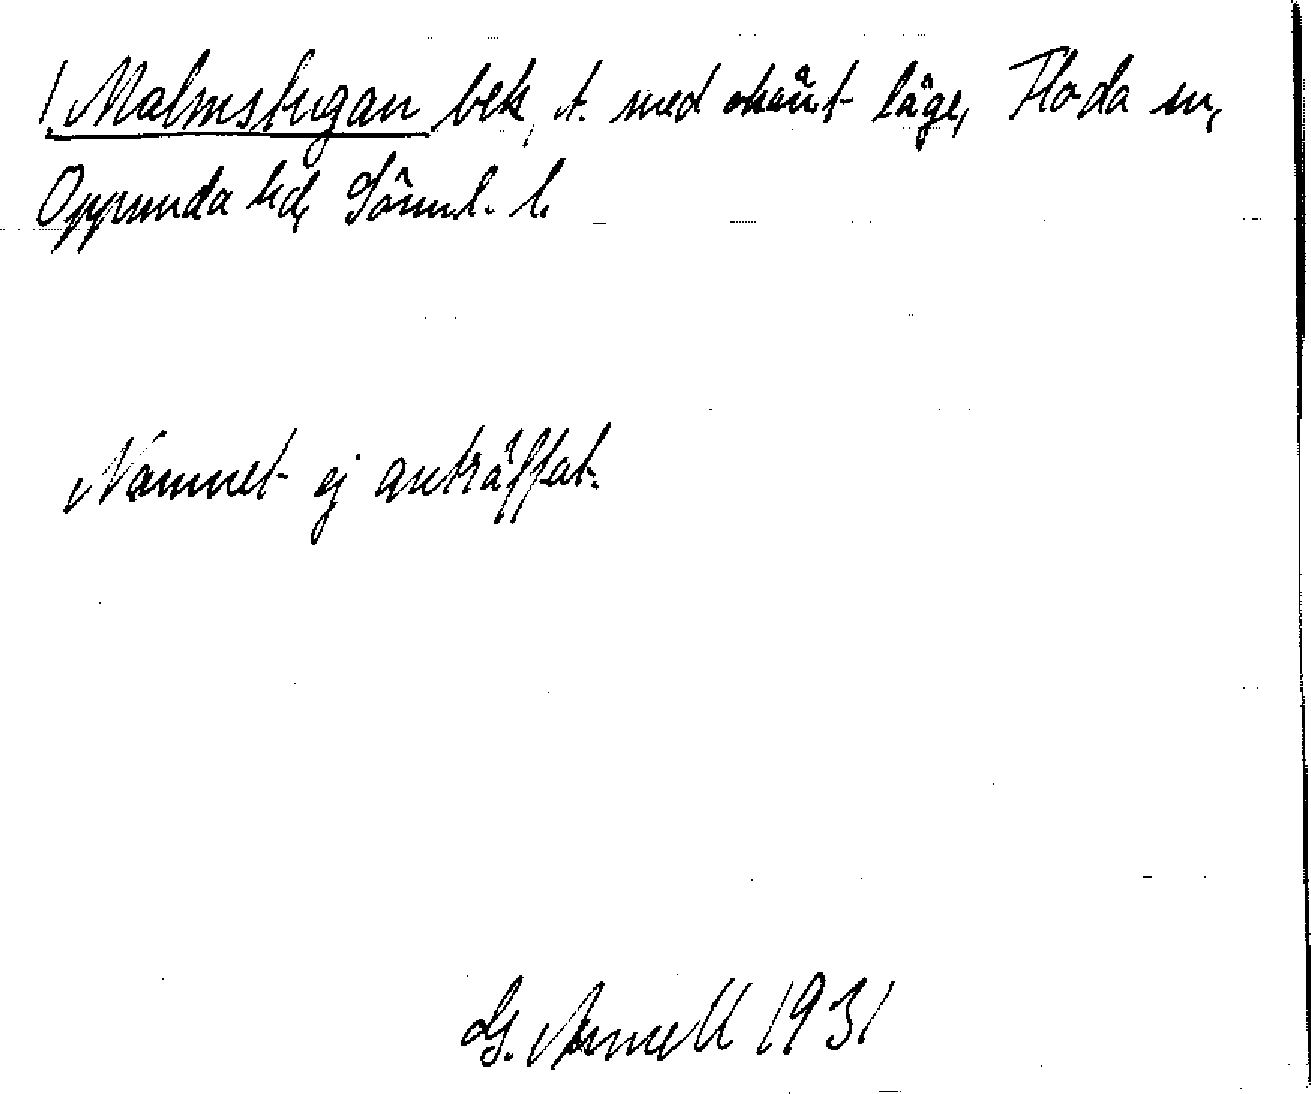 1. Malmstugan bek, t. med okänt läge, Floda sn,
Oppunda hd, Sörml. l.
Namnet ej anträffat.
G. Arnell 1931